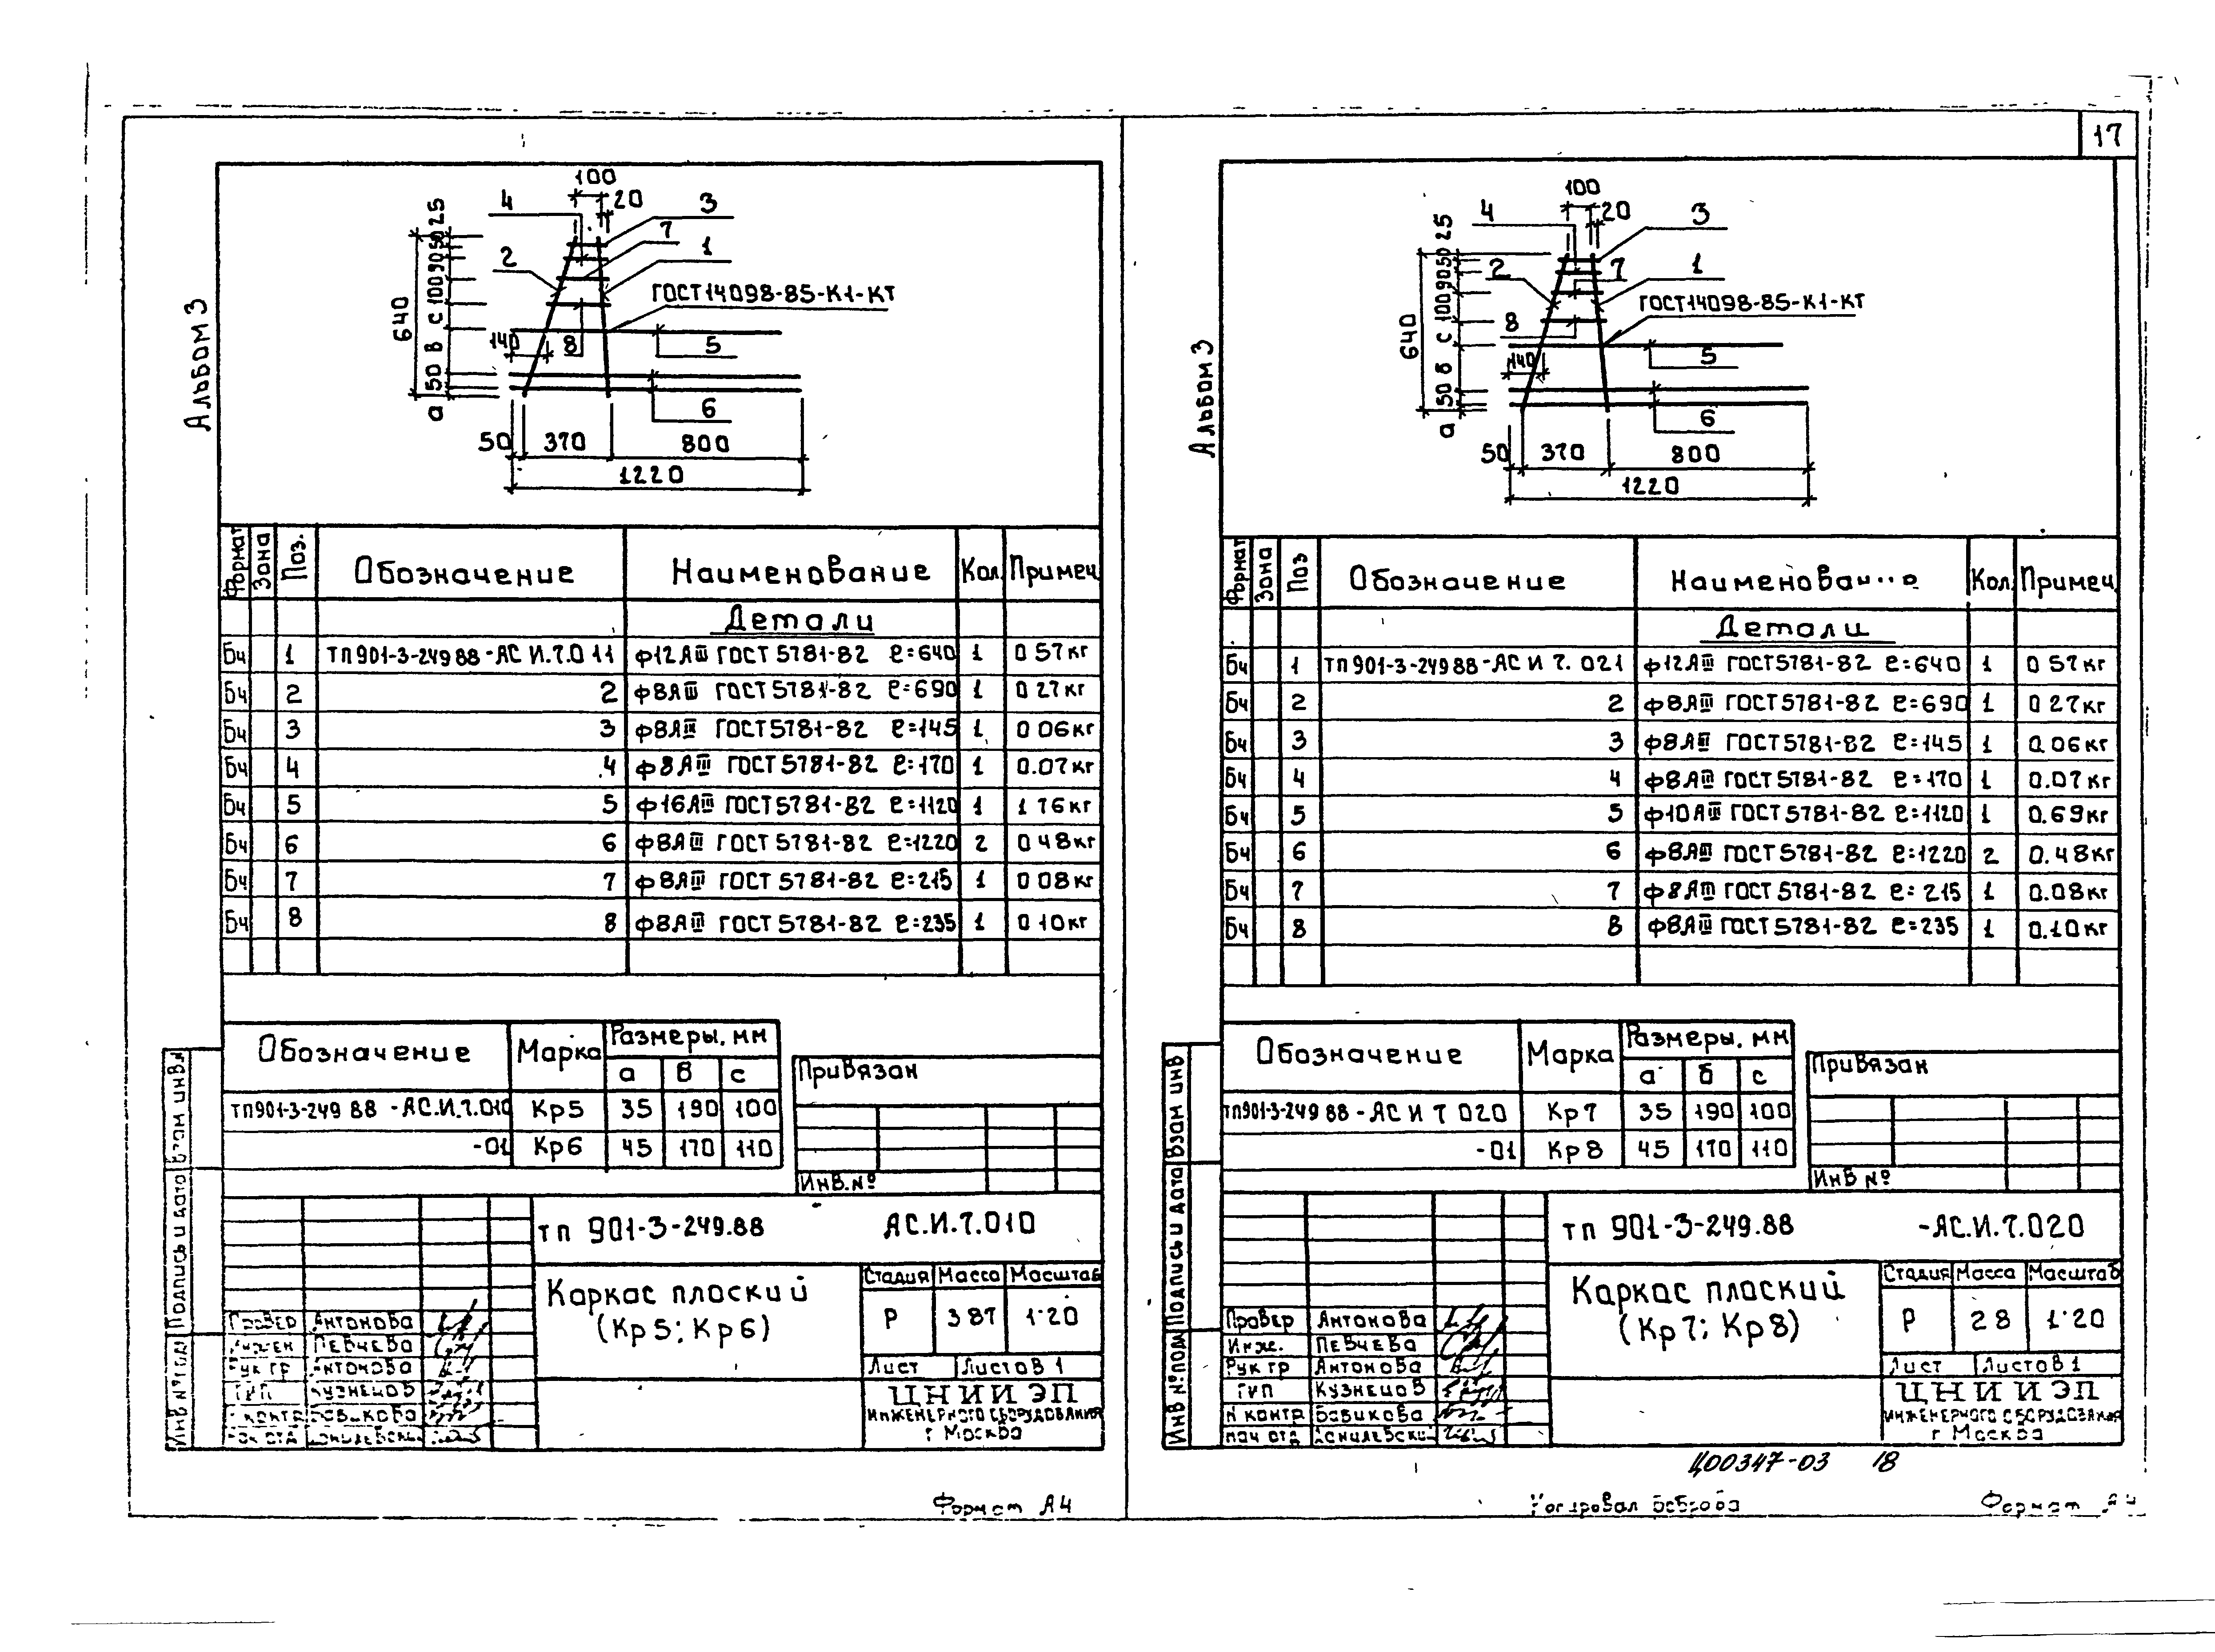 17
Альбом 3
100
20
4
3
7
2
1
ГОСТ14098-85-К1-КТ
640
25
50
90
100
с
в
50
а
140
8
5
6
50 370 800
1220
Формат Зона Поз. Обозначение Наименование Кол. Примеч.
Детали
Бч 1 ТП901-3-249 88-АС И.7.011 ф12АIII ГОСТ 5781-82 ℓ=640 1 0 57кг
Бч 2 2 ф8АIII ГОСТ 5781-82 ℓ=690 1 0 27кг
Бч 3 3 ф8АIII ГОСТ 5781-82 ℓ=145 1 0 06кг
Бч 4 4 ф8АIII ГОСТ 5781-82 ℓ=170 1 0.07кг
Бч 5 5 ф16АIII ГОСТ 5781-82 ℓ=1120 1 1 76кг
Бч 6 6 ф8АIII ГОСТ 5781-82 ℓ=1220 2 0 48кг
Бч 7 7 ф8АIII ГОСТ 5781-82 ℓ=215 1 0 08кг
Бч 8 8 ф8АIII ГОСТ 5781-82 ℓ=235 1 0 10кг
Обозначение Марка Размеры, мм
а в с
ТП901-3-249 88 -АС.И.7.010 Кр5 35 190 100
-01 Кр6 45 170 110
Привязан
Инв.№
тп 901-3-249.88 АС.И.7.010
Каркас плоский
(Кр5; Кр6)
Стадия Масса Масштаб
Р 3 87 1:20
Лист Листов 1
ЦНИИЭП
инженерного оборудования
г Москва
Провер Антонова
Инжен Певчева
Рук гр Антонова
ГИП Кузнецов
Н контр Бовикова
Нач отд
Подпись и дата
Взам инв №
Инв № подл
Формат А4
Альбом 3
100
20
4
3
2
7
1
ГОСТ14098-85-К1-КТ
640
25
50
90
100
с
б
50
а
140
8
5
6
50 370 800
1220
Формат Зона Поз Обозначение Кол. Примеч.
Детали
Бч 1 ТП901-3-249 88-АС И 7. 021 ф12АIII ГОСТ 5781-82 ℓ=640 1 0 57кг
Бч 2 2 ф8АIII ГОСТ 5781-82 ℓ=690 1 0 27кг
Бч 3 3 ф8АIII ГОСТ 5781-82 ℓ=145 1 0.06кг
Бч 4 4 ф8АIII ГОСТ 5781-82 ℓ=170 1 0.07кг
Бч 5 5 ф10АIII ГОСТ 5781-82 ℓ=1120 1 0.69кг
Бч 6 6 ф8АIII ГОСТ 5781-82 ℓ=1220 2 0.48кг
Бч 7 7 ф8АIII ГОСТ 5781-82 ℓ=215 1 0.08кг
Бч 8 8 ф8АIII ГОСТ 5781-82 ℓ=235 1 0.10кг
Обозначение Марка Размеры, мм
а б с
ТП901-3-249 88-АС И 7 020 Кр7 35 190 100
-01 Кр8 45 170 110
Привязан
Инв №
тп 901-3-249.88 -АС.И.7.020
Каркас плоский
(Кр7; Кр8)
Стадия Масса Масштаб
Р 2 8 1:20
Лист Листов 1
ЦНИИЭП
инженерного оборудования
г Москва
Провер Антонова
Инж. Певчева
Рук гр Антонова
ГИП Кузнецов
Н контр Бовикова
Нач отд
Взам инв
Подпись и дата
Инв № подл
Ц00347-03 18
Формат А4